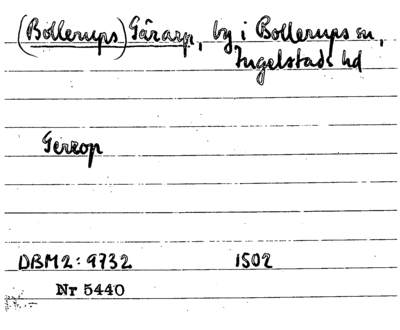 (Bollerups) Gårarp, by i Bollerups sn,
Ingelstads hd
Gerrop
DBM2: 9732 1502
Nr 5440